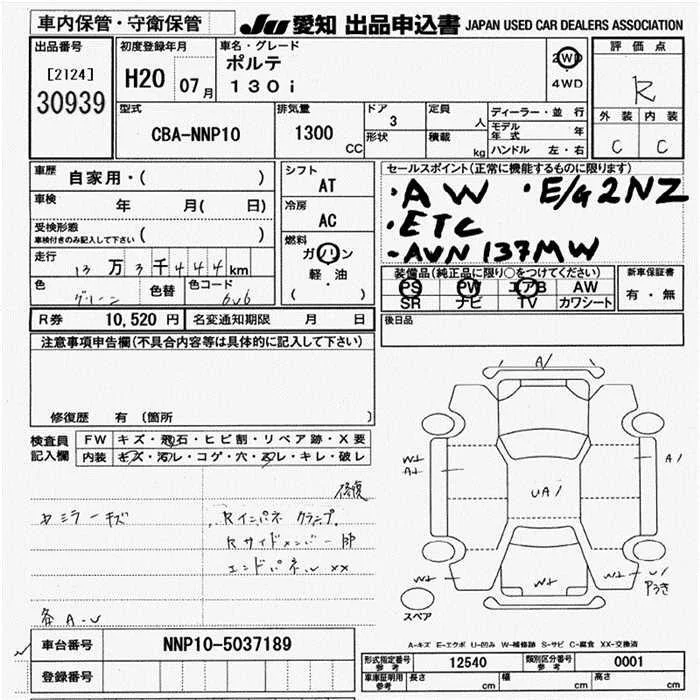 車内保管・守衛保管 JU 愛知 出品申込書 JAPAN USED CAR DEALERS ASSOCIATION
出品番号 [2124] 30939
初度登録年月 H20 07月
車名・グレード ポルテ 130i
2WD
4WD
評価点 R
外装 内装
C C
型式 CBA-NNP10
排気量 1300 CC
ドア 3
形状
定員 人
積載 kg
ディーラー・並行
モデル年式 年
ハンドル 左・右
車歴 自家用・( )
車検 年 月( 日)
受検形態
車検付きのみ記入して下さい ( )
走行 13万3千444km
色 グリーン 色替 色コード 6V6
シフト AT
冷房 AC
燃料 ガソリン
軽・油
( )
セールスポイント(正常に機能するものに限ります)
・AW ・E/G2NZ
・ETC
・AVN 137MW
装備品(純正品に限り○をつけてください)
PS PW エアB AW
SR ナビ TV カワシート
新車保証書
有・無
R券 10,520円 名変通知期限 月 日
後日品
注意事項申告欄(不具合内容等は具体的に記入して下さい)
修復歴 有 (箇所 )
検査員記入欄
FW キズ・飛石・ヒビ割・リペア跡・X要
内装 キズ・汚レ・コゲ・穴・スレ・キレ・破レ
修復
ミラーキズ
Rインパネ クランプ
Rサイドメンバー
エンドパネル XX
A・U
A1
W1
A1
A1
UA1
W1
W1
W1
U1
Pうき
スペア
A-キズ E-エクボ U-凹み W-補修跡 S-サビ C-腐食 XX-交換済
車台番号 NNP10-5037189
登録番号
形式指定番号 参考 12540 類別区分番号 参考 0001
車庫証明用 参考 長さ cm 幅 cm 高さ cm